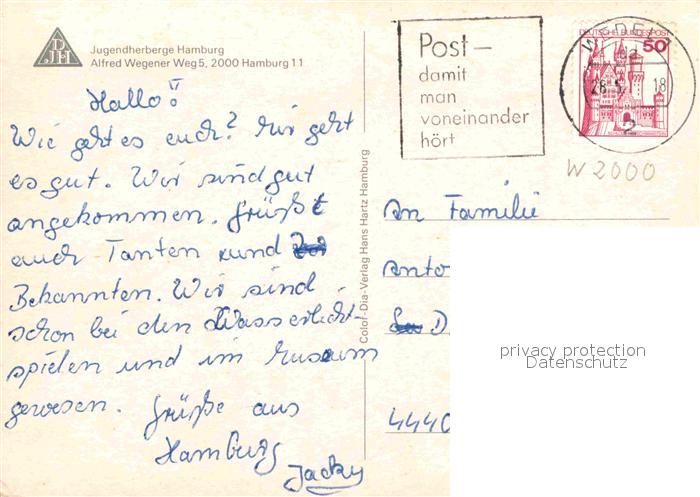 DJH
Jugendherberge Hamburg
Alfred Wegener Weg 5, 2000 Hamburg 11
Post –
damit
man
voneinander
hört
WEDEL
DEUTSCHE BUNDESPOST
50
18
2
W 2000
Hallo!!
Wie geht es euch? Mir geht
es gut. Wir sind gut
angekommen. Grüßt
auch Tanten und
Bekannten. Wir sind
schon bei den Wasserlicht-
spielen und im Museum
gewesen. Grüße aus
Hamburg
Jacky
Color-Dia-Verlag Hans Hartz Hamburg
An Familie
Anto
D
4440
privacy protection
Datenschutz